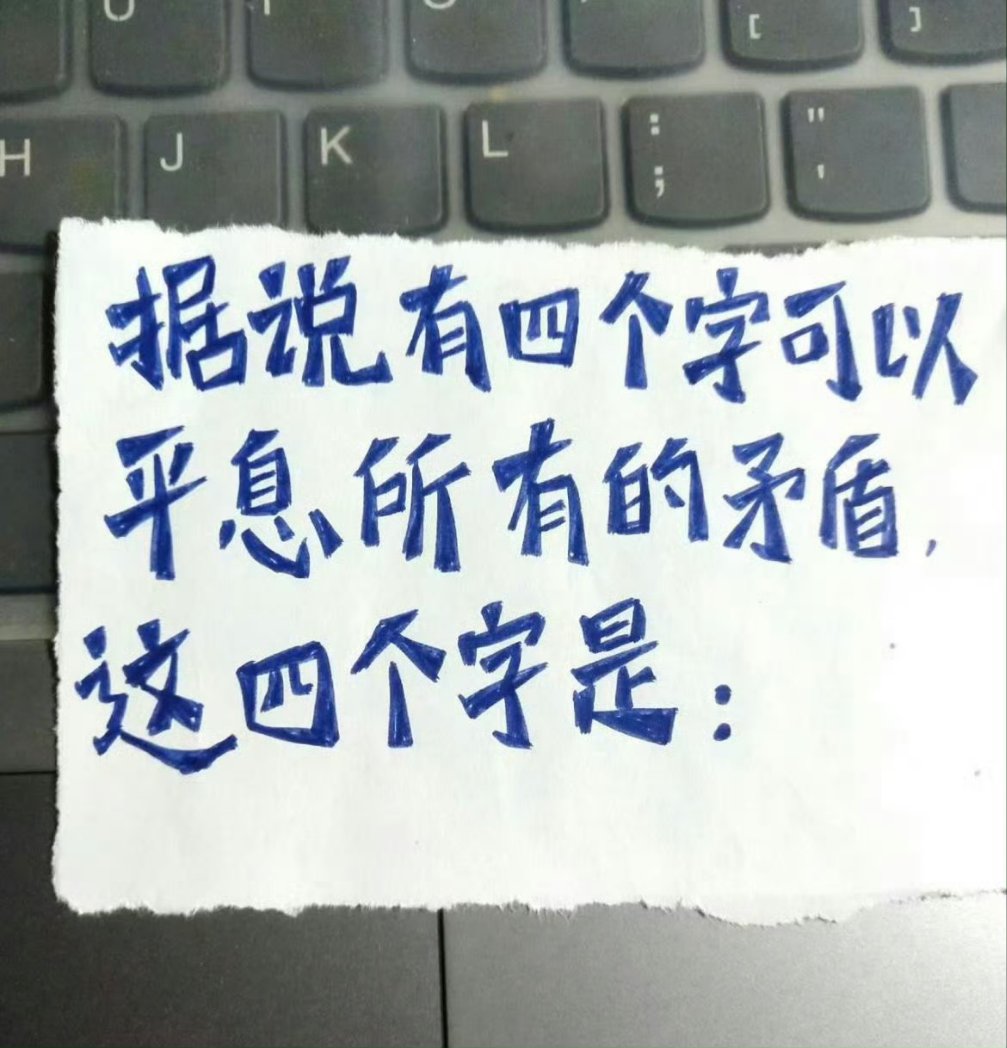 [ ]
H J K L : ; " '
据说有四个字可以
平息所有的矛盾,
这四个字是: